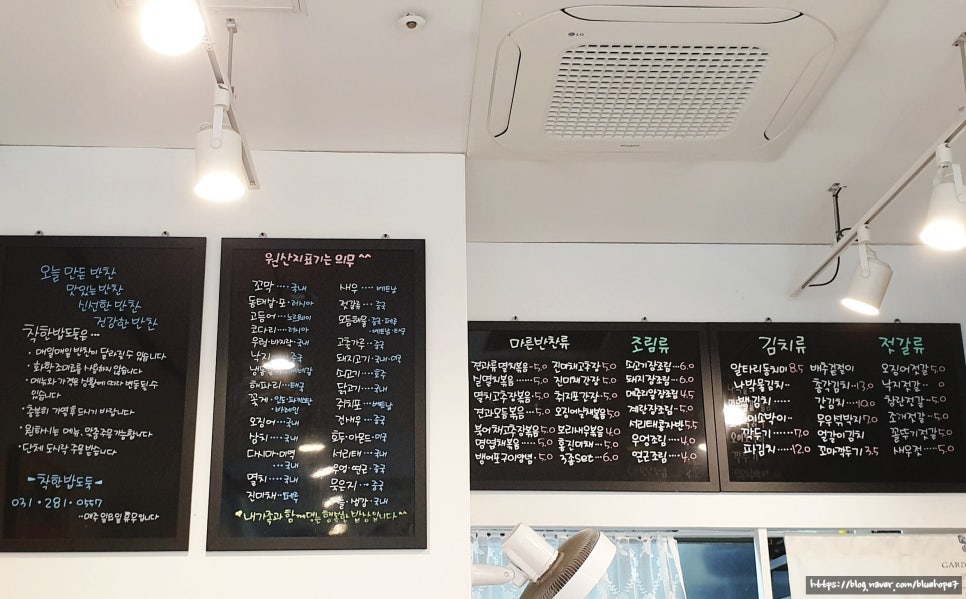 오늘 만든 반찬
맛있는 반찬
신선한 반찬
건강한 반찬
착한밥도둑은...
· 매일매일 반찬이 달라질 수 있습니다
· 화학조미료를 사용하지 않습니다
· 메뉴와 가격은 상황에 따라 변동될 수
있습니다
· 충분히 가열후 드시기 바랍니다
· 원하시는 메뉴, 맞춤주문 가능합니다
· 단체 도시락 주문 받습니다
착한밥도둑
031·281·0557
매주 일요일 휴무입니다
원산지표기는 의무^^
꼬막····국내
동태살·포·러시아
고등어··노르웨이
코다리···러시아
우렁·바지락·국내
낙지 중국
해파리··태국
꽃게··인도·파키스탄
·바레인
오징어···국내
참치···국내
다시마·미역
···국내
멸치···국내
진미채··페루
새우····베트남
젓갈류··중국
모듬해물·중국·페루
·베트남·태국
고춧가루··중국
돼지고기··국내·미국
쇠고기··호주
닭고기··국내
쥐치포··베트남
건새우··중국
호두·아몬드·미국
서리태··국내
우엉·연근·중국
묵은지··중국
마늘·생강·국내
내가족과 함께먹는 행복한 밥상입니다^^
LG
마른반찬류
견과류멸치볶음·5.0
잔멸치볶음·····5.0
멸치고추장볶음·5.0
견과모듬볶음···5.0
북어채고추장볶음5.0
명엽채볶음····5.0
뱅어포구이양념·5.0
진미채고추장5.0
진미채간장·5.0
쥐치포간장·5.0
오징어실채볶음5.0
보리새우볶음4.0
홍진미채··5.0
3종Set···6.0
조림류
쇠고기장조림··6.0
돼지장조림··6.0
메추리알장조림4.5
계란장조림··5.0
서리태콩자반5.5
우엉조림···4.0
연근조림···4.0
김치류
알타리동치미8.5
나박물김치··
백김치·····
오이소박이··
깍두기·····7.0
파김치····12.0
배추겉절이
총각김치··13.0
갓김치···10.0
무말랭이7.0
얼갈이김치
꼬마깍두기3.5
젓갈류
오징어젓갈5.0
낙지젓갈··
창란젓갈·5.0
조개젓갈·5.0
꼴뚜기젓갈5.0
새우젓···5.0
GARD
https://blog.naver.com/bluehope7